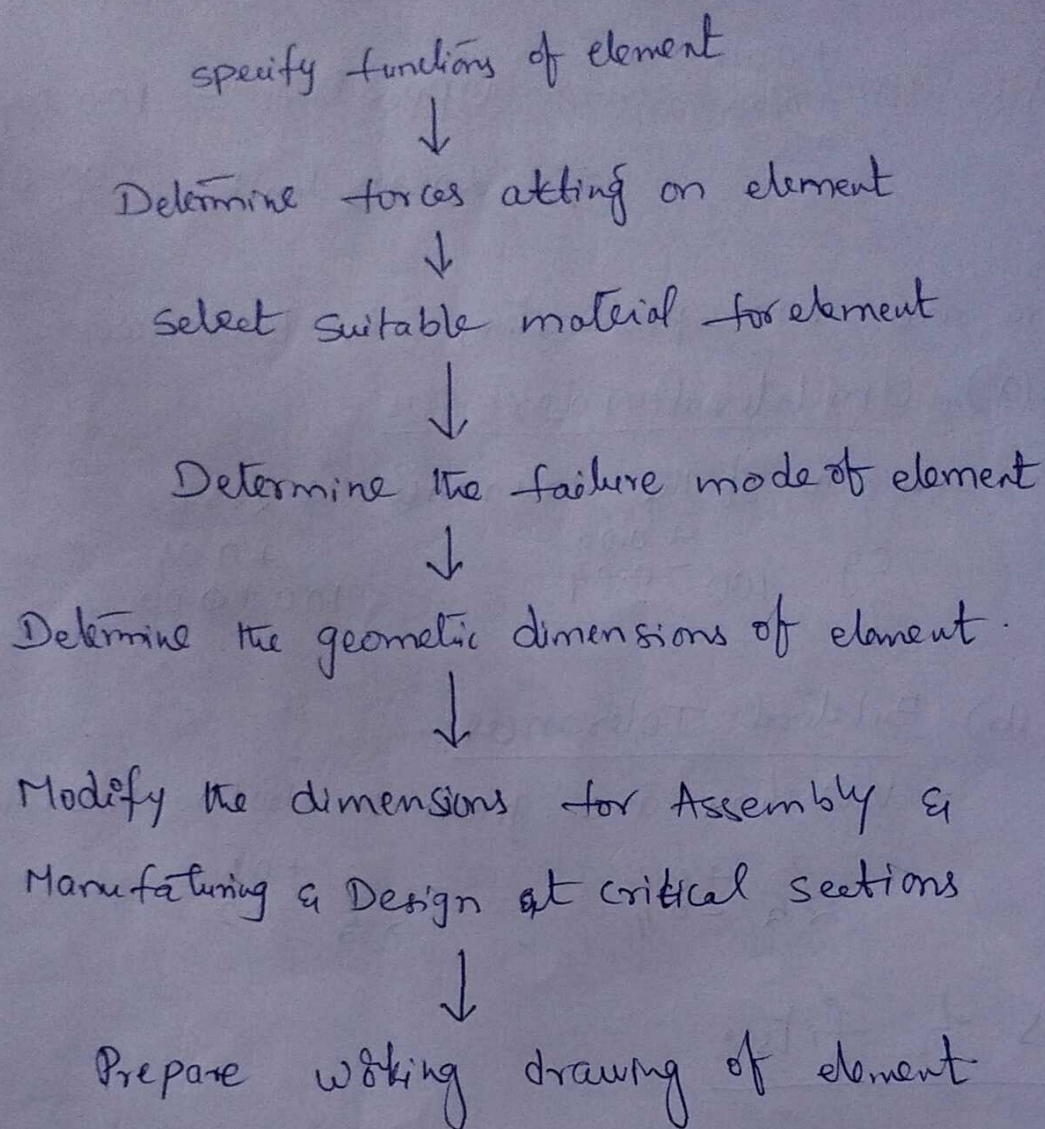 specify functions of element
↓
Determine forces akting on element
↓
select suitable material for element
↓
Determine the failure mode of element
↓
Determine the geometric dimensions of element.
↓
Modify the dimensions for Assembly &
Manufacturing & Design at critical sections
↓
Prepare working drawing of element